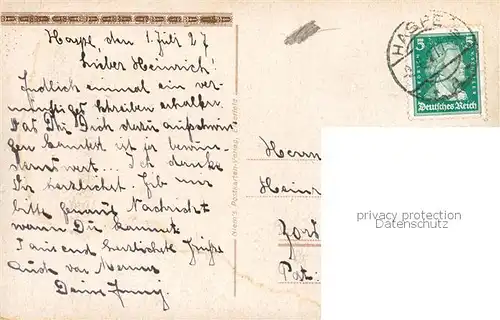 Haspe, den 1. Juli 27
Lieber Heinrich!
Endlich einmal ein ver-
nünftiges Schreiben erhalten.
Das Du Dich dazu aufschwin-
gen konntest ist ja bewun-
dernswert... Ich danke
Dir herzlichst. Gib mir
bitte genaue Nachricht
wann Du kommst.
Tausend herzlichste Grüße
auch von
Deine
Herrn
Heinr
HASPE
5
5
Deutsches Reich
privacy protection
Datenschutz